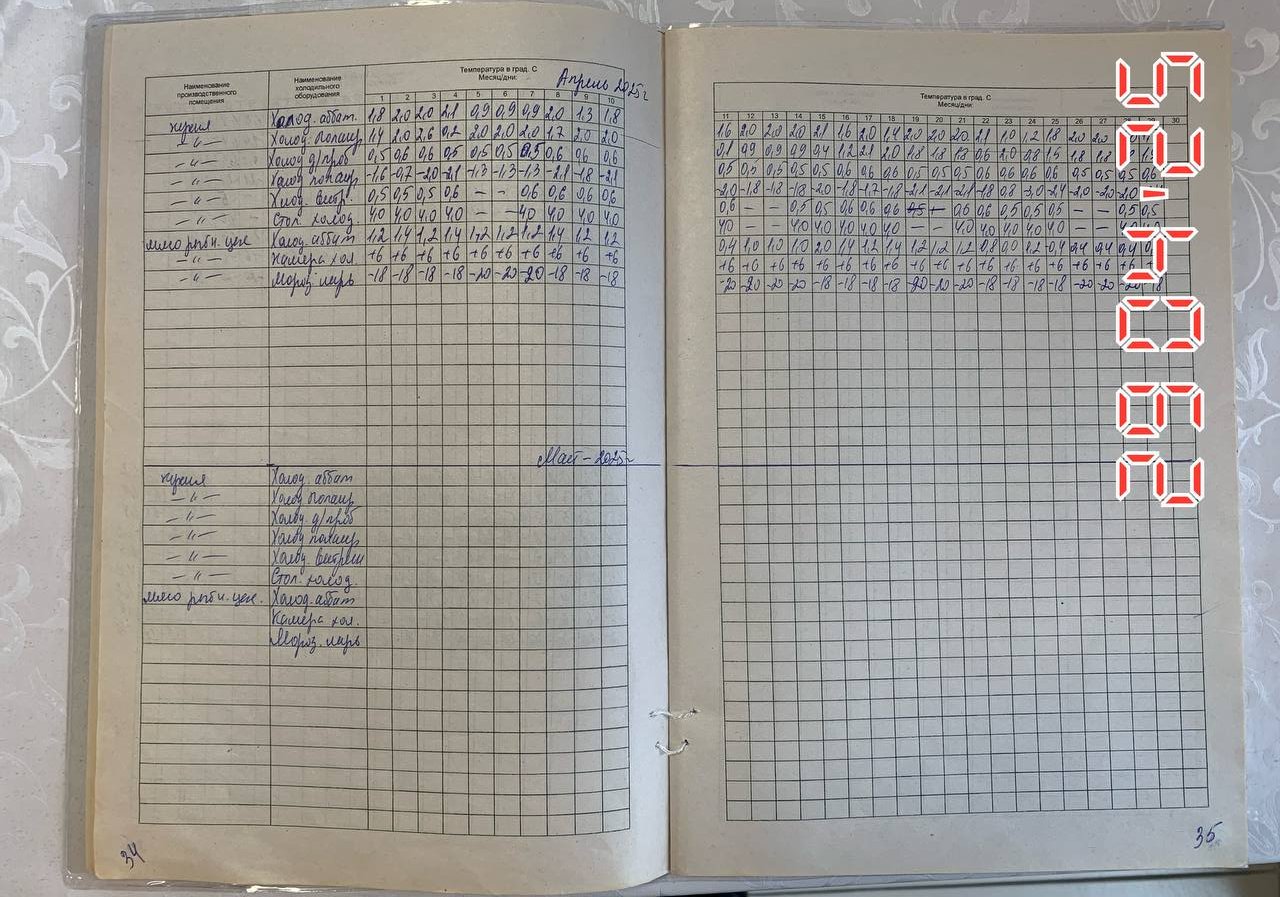 Температура в град. С
Месяц/дни:
Апрель 2025г
Наименование производственного помещения
Наименование холодильного оборудования
1 2 3 4 5 6 7 8 9 10
кухня Холод. аббат. 1,8 2,0 2,0 2,1 0,9 0,9 0,9 2,0 1,3 1,8
—〃— Холод. 1,4 2,0 2,6 0,2 2,0 2,0 2,0 1,7 2,0 2,0
—〃— Холод д/проб 0,5 0,6 0,6 0,5 0,5 0,5 0,5 0,6 0,6 0,6
—〃— Холод -1,6 -0,7 -2,0 -2,1 -1,3 -1,3 -1,3 -2,1 -1,8 -2,1
—〃— Холод. витр. 0,5 0,5 0,5 0,6 — — 0,6 0,6 0,6 0,6
—〃— Стол холод. 4,0 4,0 4,0 4,0 — — 4,0 4,0 4,0 4,0
мясо рыбн. цех Холод. аббат 1,2 1,4 1,2 1,4 1,2 1,2 1,2 1,4 1,2 1,2
—〃— Камера хол. +6 +6 +6 +6 +6 +6 +6 +6 +6 +6
—〃— Мороз. ларь -18 -18 -18 -18 -20 -20 -20 -18 -18 -18
Май - 2025г
кухня Холод. аббат
—〃— Холод
—〃— Холод. д/проб
—〃— Холод
—〃— Холод. витрин
—〃— Стол. холод.
мясо рыбн. цех. Холод. аббат
Камера хол.
Мороз. ларь
34
Температура в град. С
Месяц/дни:
11 12 13 14 15 16 17 18 19 20 21 22 23 24 25 26 27 28 29 30
1,6 2,0 2,0 2,0 2,1 1,6 2,0 1,4 2,0 2,0 2,0 2,1 1,0 1,2 1,8 2,0 2,0
0,1 0,9 0,9 0,9 0,4 1,2 2,1 2,0 1,8 1,8 1,8 0,6 2,0 0,8 1,5 1,8 1,8
0,5 0,5 0,5 0,5 0,5 0,6 0,6 0,6 0,5 0,5 0,5 0,6 0,6 0,6 0,6 0,5 0,5 0,5 0,6
-2,0 -1,8 -1,8 -1,8 -2,0 -1,8 -1,7 -1,8 -2,1 -2,1 -2,1 -1,8 0,8 -3,0 -2,4 -2,0 -2,0 -2,0
0,6 — — 0,5 0,5 0,6 0,6 0,6 — 0,6 0,6 0,5 0,5 0,5 — — 0,5 0,5
4,0 — — 4,0 4,0 4,0 4,0 4,0 — — 4,0 4,0 4,0 4,0 4,0 — —
0,4 1,0 1,0 1,0 2,0 1,4 1,2 1,4 1,2 1,2 1,2 0,8 0,0 1,2 -0,4 0,4 0,4 0,4
+6 +6 +6 +6 +6 +6 +6 +6 +6 +6 +6 +6 +6 +6 +6 +6 +6 +6
-20 -20 -20 -20 -18 -18 -18 -18 -20 -20 -20 -18 -18 -18 -18 -20 -20 -20 -18
35
29.04.'25